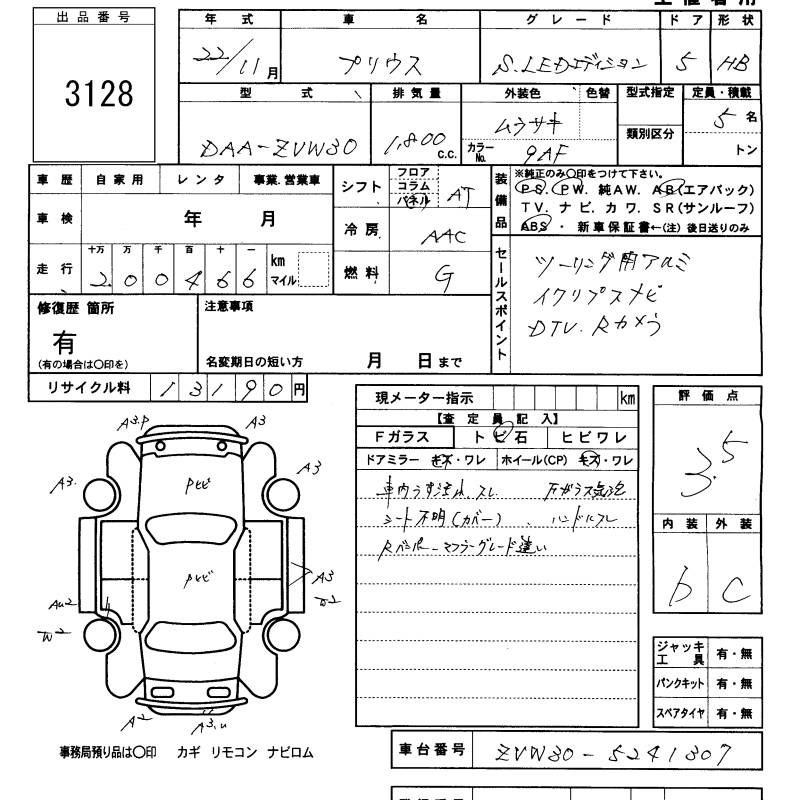 出品番号
3128
年 式 車 名 グ レ ー ド ド ア 形 状
22/11月 プリウス S.LEDエディション 5 HB
型 式 排 気 量 外装色 色替 型式指定 定員・積載
DAA-ZVW30 1,800 c.c. ムラサキ 類別区分 5 名
カラーNo. 9AF トン
車 歴 自 家 用 レ ン タ 事業.営業車
車 検 年 月
走 行 十万 万 千 百 十 一 km マイル
2 0 0 4 6 6
シフト フロア コラム パネル AT
冷 房 AAC
燃 料 G
装備品
※純正のみ〇印をつけて下さい。
PS. PW. 純AW. AB(エアバック)
TV. ナビ. カワ. SR(サンルーフ)
ABS ・ 新車保証書←(注) 後日送りのみ
セールスポイント
ツーリング用アルミ
イクリプスナビ
DTV. Rカメラ
修復歴 箇所
有
(有の場合は〇印を)
注意事項
名変期日の短い方 月 日 まで
リサイクル料 1 3 1 9 0 円
現メーター指示 km
【査 定 員 記 入】
Fガラス ト ビ 石 ヒビワレ
ドアミラー キズ・ワレ ホイール(CP) キズ・ワレ
シート不明(カバー) 、 ハンドルスレ
Rバンパー マフラーグレード違い
評 価 点
3.5
内 装 外 装
b C
ジャッキ工 具 有・無
パンクキット 有・無
スペアタイヤ 有・無
A3.P A3
A3. A3
Pレビ
Pレビ
A3
AU2
W2
A2 A3.U
事務局預り品は〇印 カギ リモコン ナビロム
車台番号 ZVW30-5241307